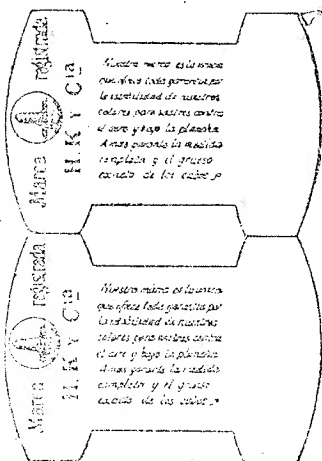 Marca registrada
H. K Y Cia
Nuestra marca es la unica
que ofrece toda garantia por
la estabilidad de nuestros
colores para sastres contra
el aire y bajo la plancha
A mas garante la medida
completa y el grueso
exacto de los cabos
Marca registrada
H. K Y Cia
Nuestra marca es la unica
que ofrece toda garantia por
la estabilidad de nuestros
colores para sastres contra
el aire y bajo la plancha
A mas garante la medida
completa y el grueso
exacto de los cabos